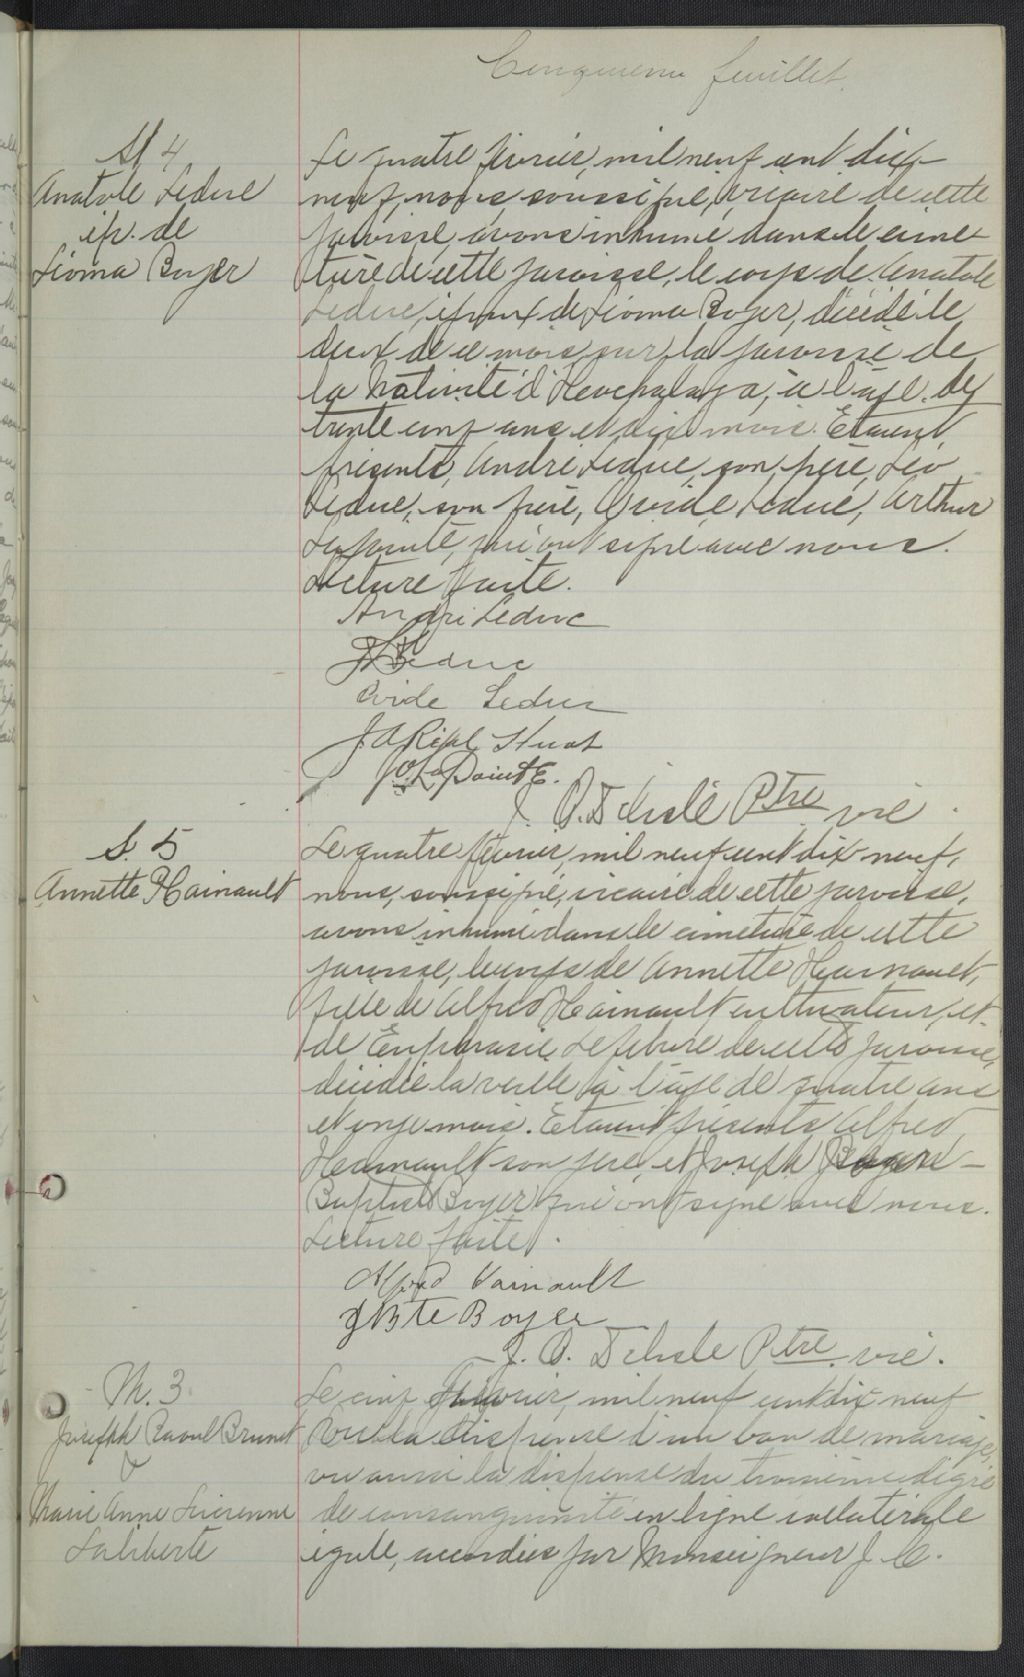 Cinquième feuillet.
S 4
Anatole Leduc
ép. de
Léoma Boyer
Le quatre février, mil neuf cent dix-
neuf, nous soussigné, vicaire de cette
paroisse, avons inhumé dans le cime-
tière de cette paroisse, le corps de Anatole
Leduc, époux de Léoma Boyer, décédé le
deux de ce mois, sur la paroisse de
la Nativité d'Hochelaga, à l'âge de
trente cinq ans et dix mois. Étaient
présents, André Leduc, son père, Léo
Leduc, son frère, Ovide Leduc, Arthur
Lapointe, qui ont signé avec nous.
Lecture faite.
André Leduc
Leduc
Ovide Leduc
J A Huot
J. A. LaPointe.
J. O. Delisle Ptre vic.
S. 5
Annette Hainault
Le quatre février, mil neuf cent dix neuf,
nous, soussigné, vicaire de cette paroisse,
avons inhumé dans le cimetière de cette
paroisse, le corps de Annette Hainault,
fille de Alfred Hainault cultivateur, et
de Euphrasie Lefebvre de cette paroisse,
décédée la veille à l'âge de quatre ans
et onze mois. Étaient présents Alfred
Hainault son père, et Joseph
Baptiste Boyer qui ont signé avec nous.
Lecture faite.
Alfred Hainault
J Bte Boyer
J. O. Delisle Ptre vic.
M. 3
Joseph Raoul Brunet
&
Marie Anne Lucienne
Laliberté
Le cinq février, mil neuf cent dix neuf
Vu la dispense d'un ban de mariage,
vu aussi la dispense du troisième degré
de consanguinité en ligne collatérale
égale, accordées par Monseigneur J. C.